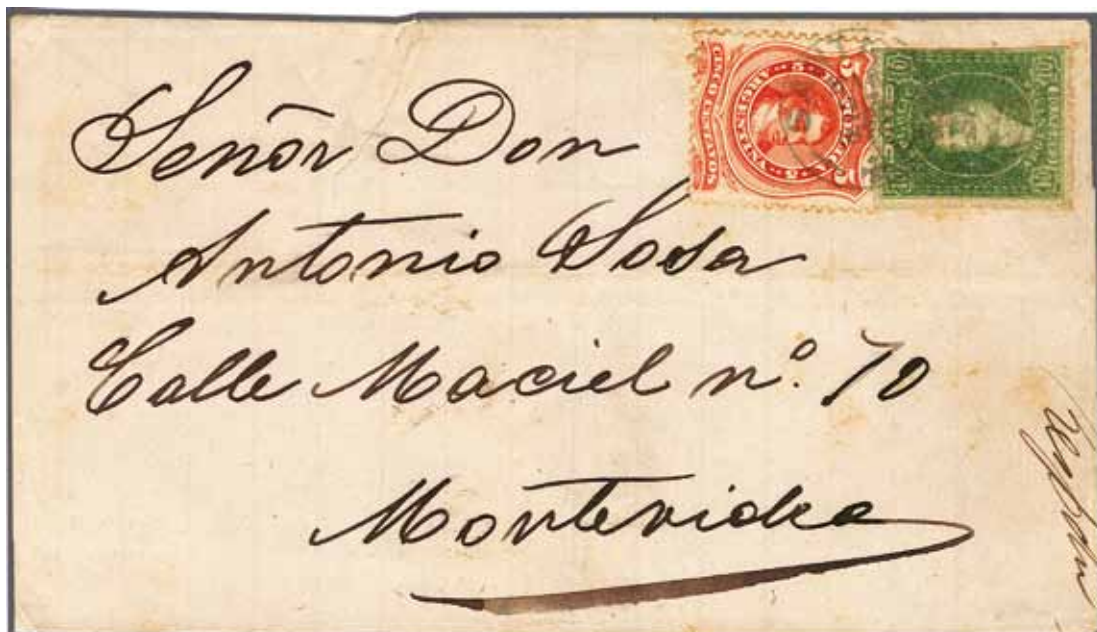 Señor Don
Antonio Sosa
Calle Maciel nº. 70
Montevideo
REPUBLICA ARGENTINA
5 5
CINCO CENTAVOS
10 10